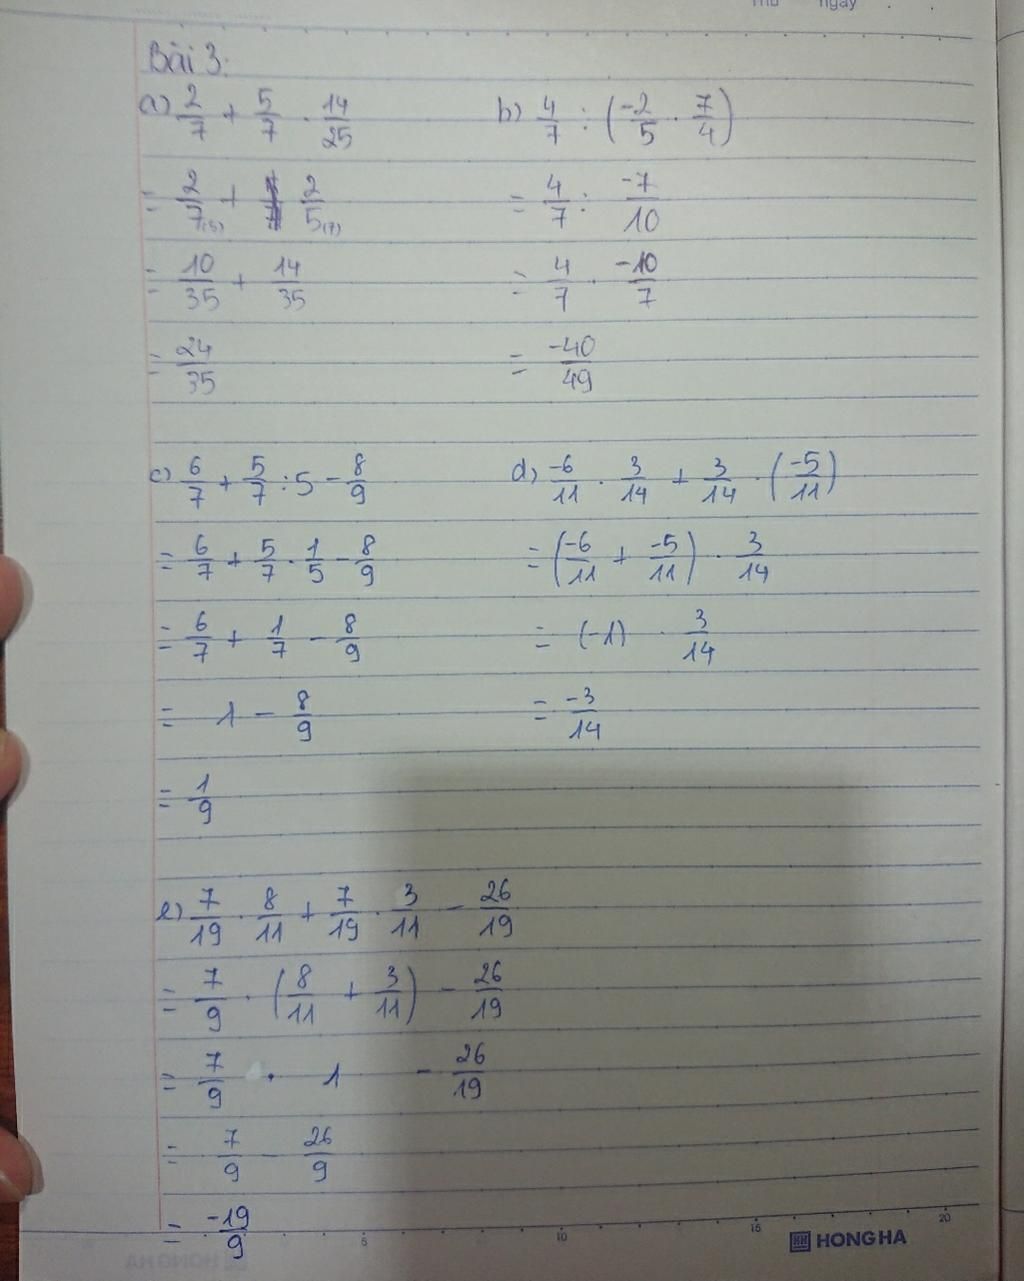 Thứ ngày
Bài 3:
a) 2/7 + 5/7 . 14/25
= 2/7(5) + 2/5(7)
= 10/35 + 14/35
= 24/35
b) 4/7 : (-2/5 . 7/4)
= 4/7 : -7/10
= 4/7 . -10/7
= -40/49
c) 6/7 + 5/7 : 5 - 8/9
= 6/7 + 5/7 . 1/5 - 8/9
= 6/7 + 1/7 - 8/9
= 1 - 8/9
= 1/9
d) -6/11 . 3/14 + 3/14 . (-5/11)
= (-6/11 + -5/11) . 3/14
= (-1) . 3/14
= -3/14
e) 7/19 . 8/11 + 7/19 . 3/11 - 26/19
= 7/9 . (8/11 + 3/11) - 26/19
= 7/9 . 1 - 26/19
= 7/9 - 26/9
= -19/9
5 10 15 20
HONG HA